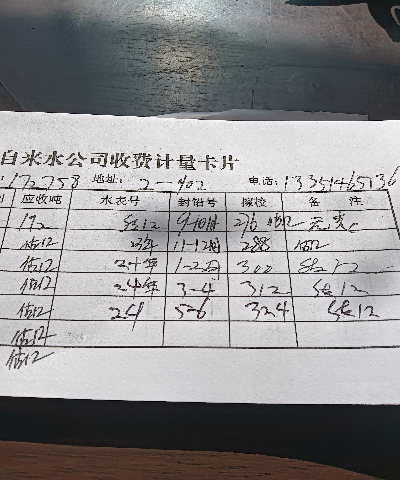 自来水公司收费计量卡片
:172758 地址: 2-402 电话:13351465136
应收吨 水表号 封铅号 稼校 备 注
192 估12 9-10月 276
估12 23年 11-12月 288 估12
估12 24年 1-2月 300 估12
估12 24年 3-4 312 估12
估12 24 5-6 324 估12
估12
估12